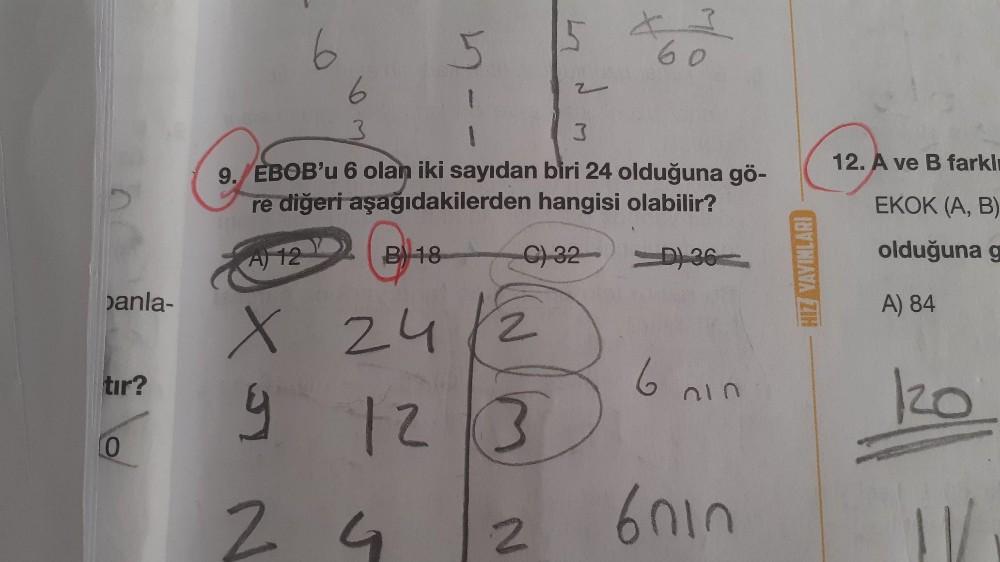 6 5 5 x 3
60
6 1 2
3 1 3
9. EBOB'u 6 olan iki sayıdan biri 24 olduğuna gö-
re diğeri aşağıdakilerden hangisi olabilir?
A) 12 B) 18 C) 32 D) 36
x 24 2
y 12 3 6 nın
2 4 2 6nın
panla-
tır?
0
HIZ YAYINLARI
12. A ve B farklı
EKOK (A, B)
olduğuna g
A) 84
120